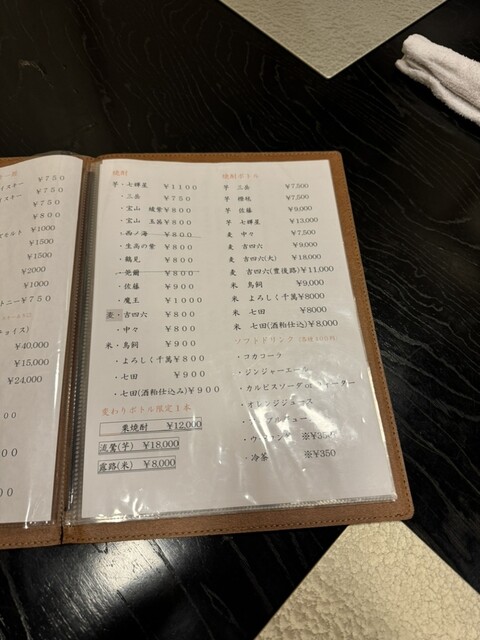 ¥750
イスキー ¥750
¥750
¥800
モルト ¥1000
¥1500
¥1500
¥2000
¥1000
トニー¥750
¥40,000
¥15,000
¥24,000
焼酎
芋・七輝星 ¥1100
・三岳 ¥750
・宝山 綾紫¥800
・宝山 玉茜¥800
・西ノ海 ¥800
・生高の紫 ¥800
・鶴見 ¥800
¥800
・佐藤 ¥900
・魔王 ¥1000
麦・吉四六 ¥800
・中々 ¥800
米・鳥飼 ¥900
・よろしく千萬¥800
・七田 ¥900
・七田(酒粕仕込み)¥900
変わりボトル限定1本
栗焼酎 ¥12,000
流鶯(芋) ¥18,000
露路(米) ¥8,000
焼酎ボトル
芋 三岳 ¥7,500
芋 ¥7,500
芋 佐藤 ¥9,000
芋 七輝星 ¥13,000
麦 中々 ¥7,500
麦 吉四六 ¥9,000
麦 吉四六(大) ¥18,000
麦 吉四六(豊後路)¥11,000
米 鳥飼 ¥9,000
米 よろしく千萬¥8000
米 七田 ¥8000
米 七田(酒粕仕込)¥8,000
ソフトドリンク
・コカコーラ
・ジンジャーエール
・カルピスソーダorウォーター
・オレンジジュース
※¥350
・冷茶 ※¥350